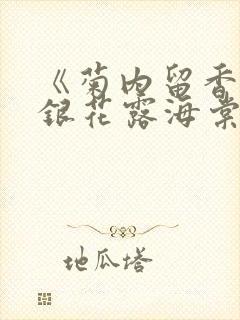 《菊内留香
銀花露海棠
地瓜塔